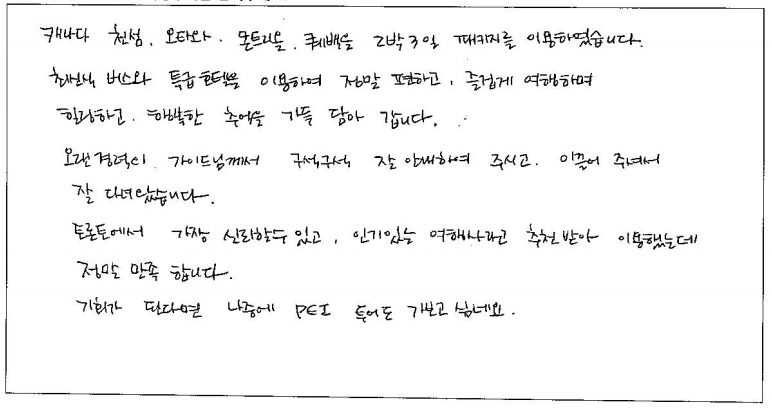 캐나다 천섬, 오타와, 몬트리올, 퀘백을 2박3일 패키지를 이용하였습니다.
최신식 버스와 특급호텔을 이용하여 정말 편하고, 즐겁게 여행하며
힐링하고, 행복한 추억을 가득 담아 갑니다.
오랜경력의 가이드님께서 구석구석 잘 안내하여 주시고, 이끌어 주셔서
잘 다녀왔습니다.
토론토에서 가장 신뢰할수 있고, 인기있는 여행사라고 추천받아 이용했는데
정말 만족 합니다.
기회가 된다면 나중에 PEI 투어도 가보고 싶네요.